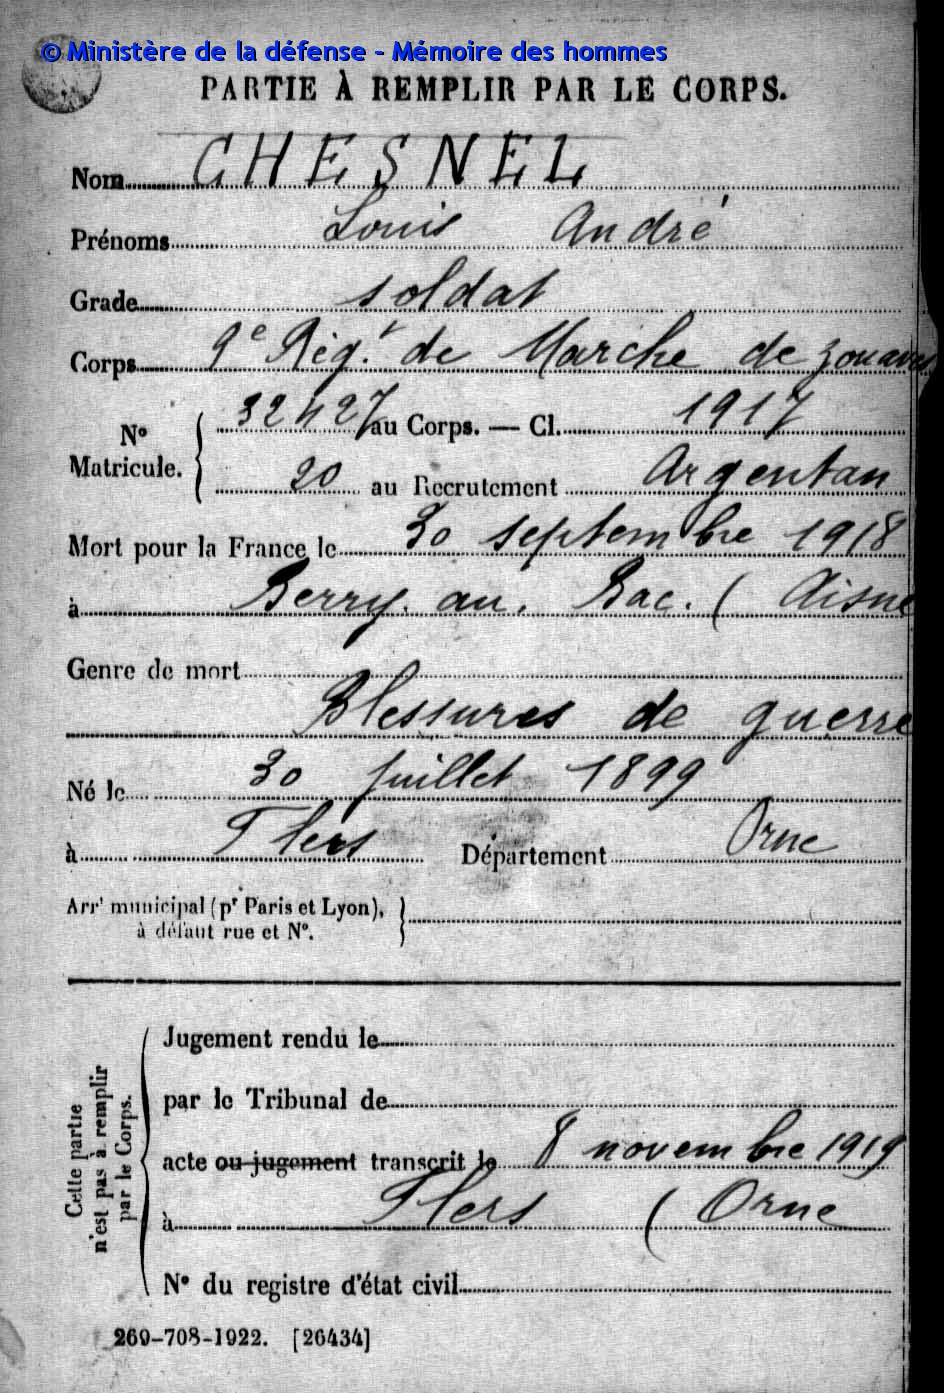 © Ministère de la défense - Mémoire des hommes
PARTIE À REMPLIR PAR LE CORPS.
Nom CHESNEL
Prénoms Louis André
Grade soldat
Corps 9e Régt de Marche de zouaves
N° Matricule. { 32427 au Corps. — Cl. 1917
20 au Recrutement Argentan
Mort pour la France le 30 septembre 1918
à Berry. au. Bac. ( Aisne
Genre de mort
Blessures de guerre
Né le 30 juillet 1899
à Flers Département Orne
Arrt municipal (pr Paris et Lyon), }
à défaut rue et N°.
Cette partie n'est pas à remplir par le Corps.
Jugement rendu le
par le Tribunal de
acte ou jugement transcrit le 8 novembre 1919
à Flers ( Orne
N° du registre d'état civil
269-708-1922. [26434]